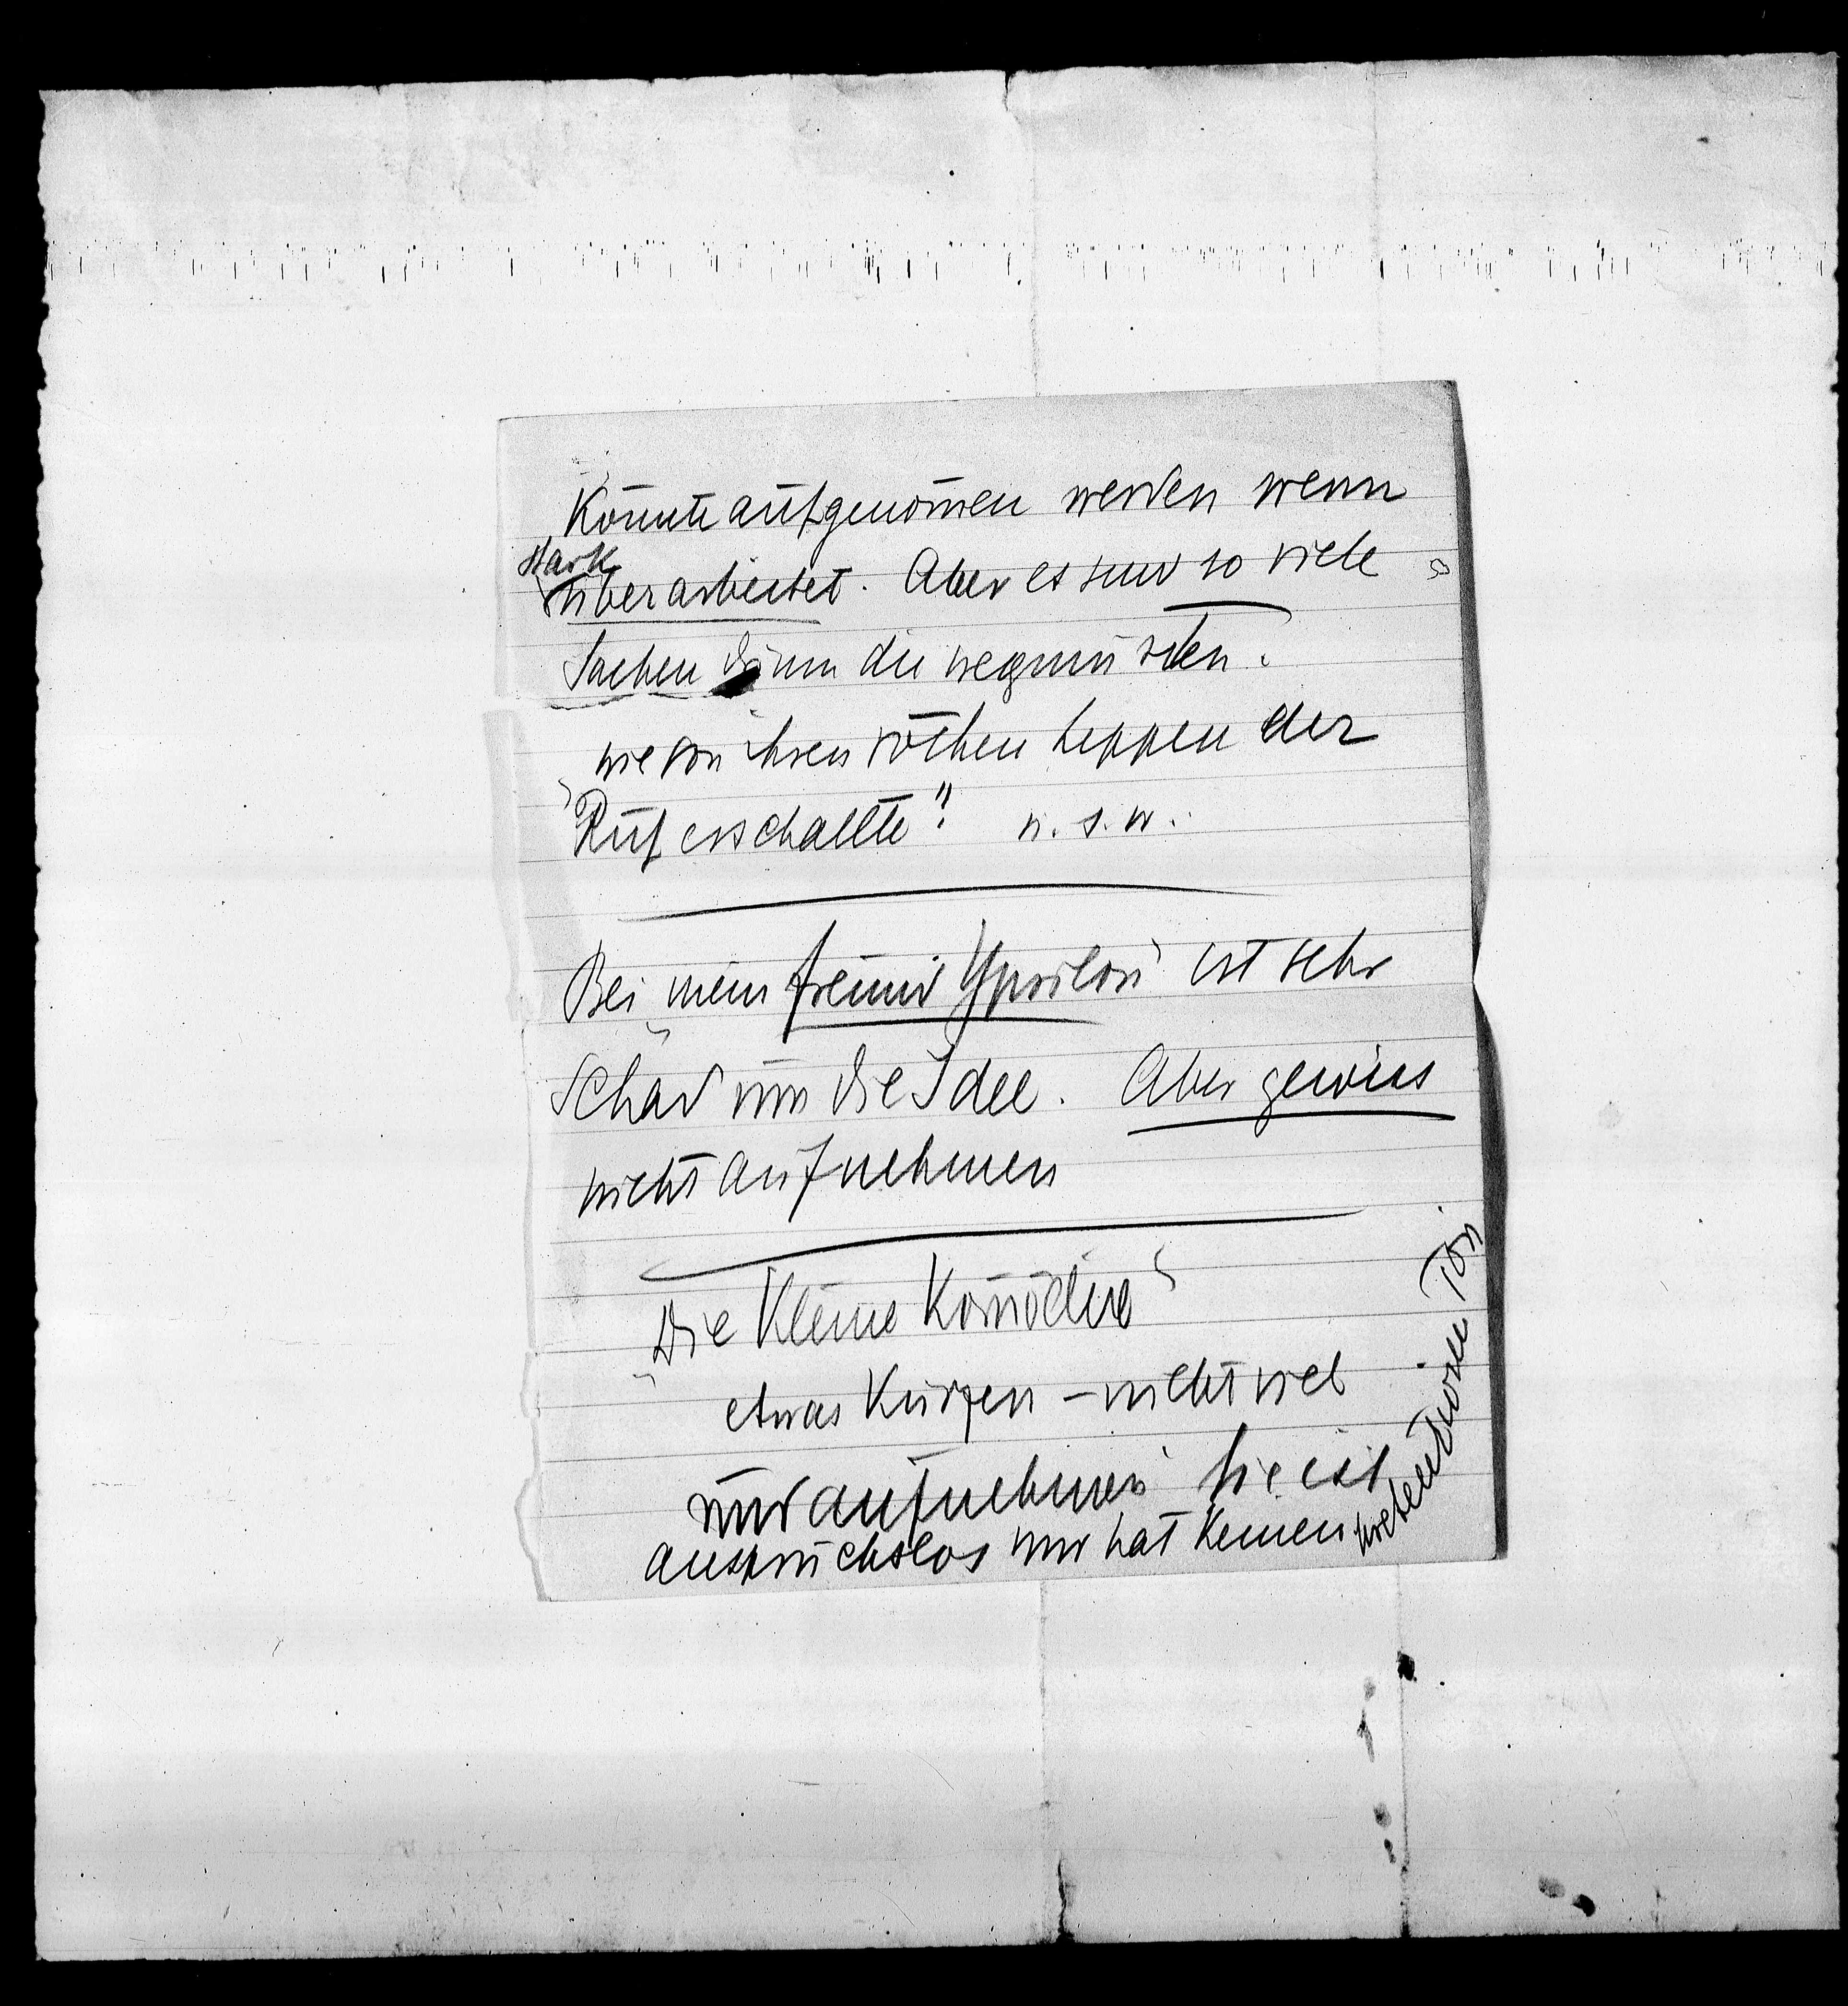 Könnte aufgenom̄en werden wenn
stark
überarbeitet. Aber es sind so viele
Sachen drinn die wegmüssten.
„wie von ihren rothen Lippen der
Ruf erschallte“! u. s. w..
Bei „mein Freund Ypsilon“ ist sehr
Schad um die Idee. Aber gewiss
nicht aufnehmen
„Die kleine Komödie“
etwas kürzen – nicht viel
und aufnehmen Sie ist
anspruchslos und hat keinen
prätentiösen Ton